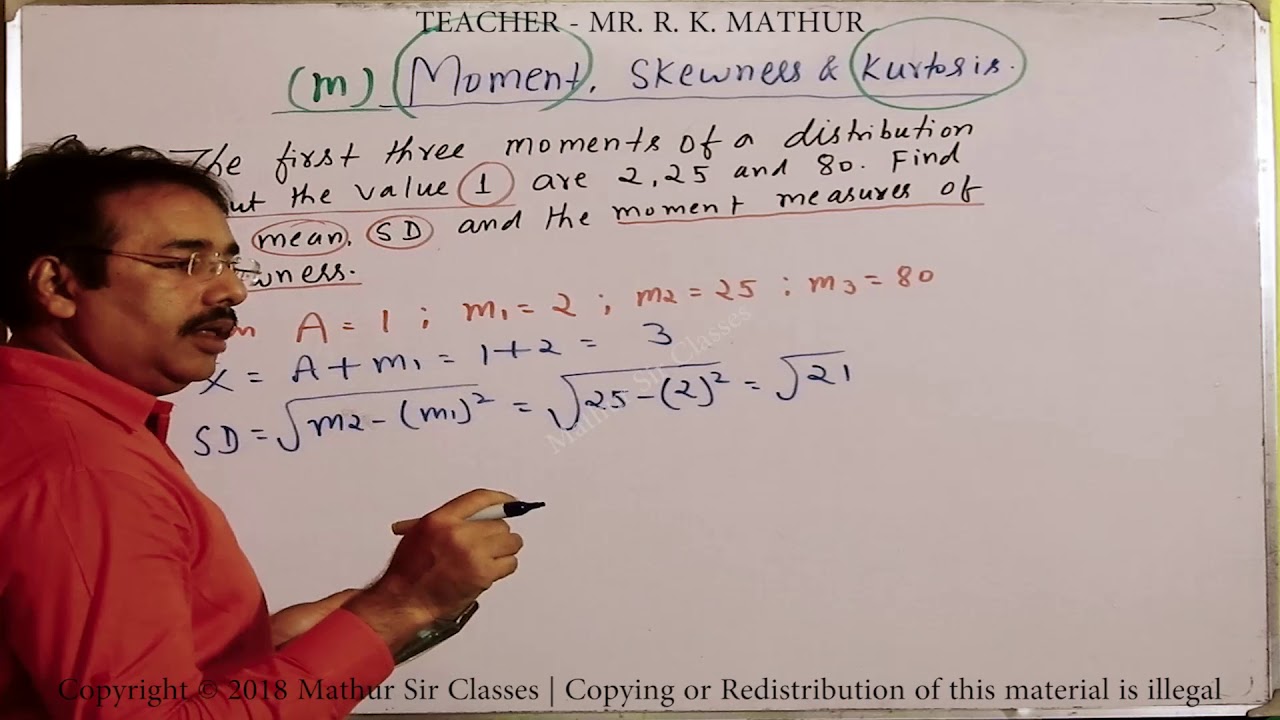 TEACHER - MR. R. K. MATHUR
(m) Moment, Skewness & Kurtosis.
The first three moments of a distribution
the value 1 are 2, 25 and 80. Find
mean, SD and the moment measures of
A = 1 ; m1 = 2 ; m2 = 25 ; m3 = 80
X = A + m1 = 1 + 2 = 3
SD = √m2 - (m1)² = √25 - (2)² = √21
Mathur Sir Classes
Copyright © 2018 Mathur Sir Classes | Copying or Redistribution of this material is illegal